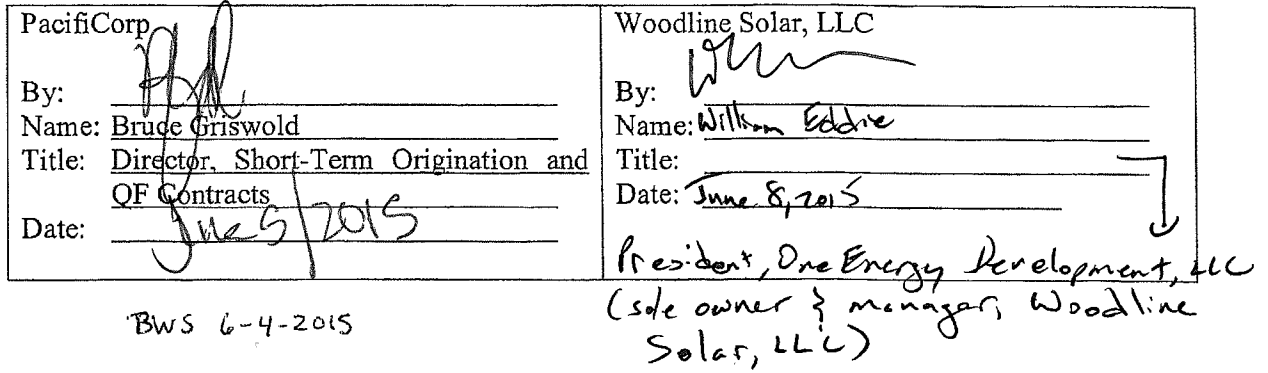 PacifiCorp
By:
Name: Bruce Griswold
Title: Director, Short-Term Origination and
QF Contracts
Date: June 5/2015
BWS 6-4-2015
Woodline Solar, LLC
By:
Name: William Eddie
Title:
Date: June 8, 2015
President, OneEnergy Development, LLC
(sole owner & manager, Woodline
Solar, LLC)